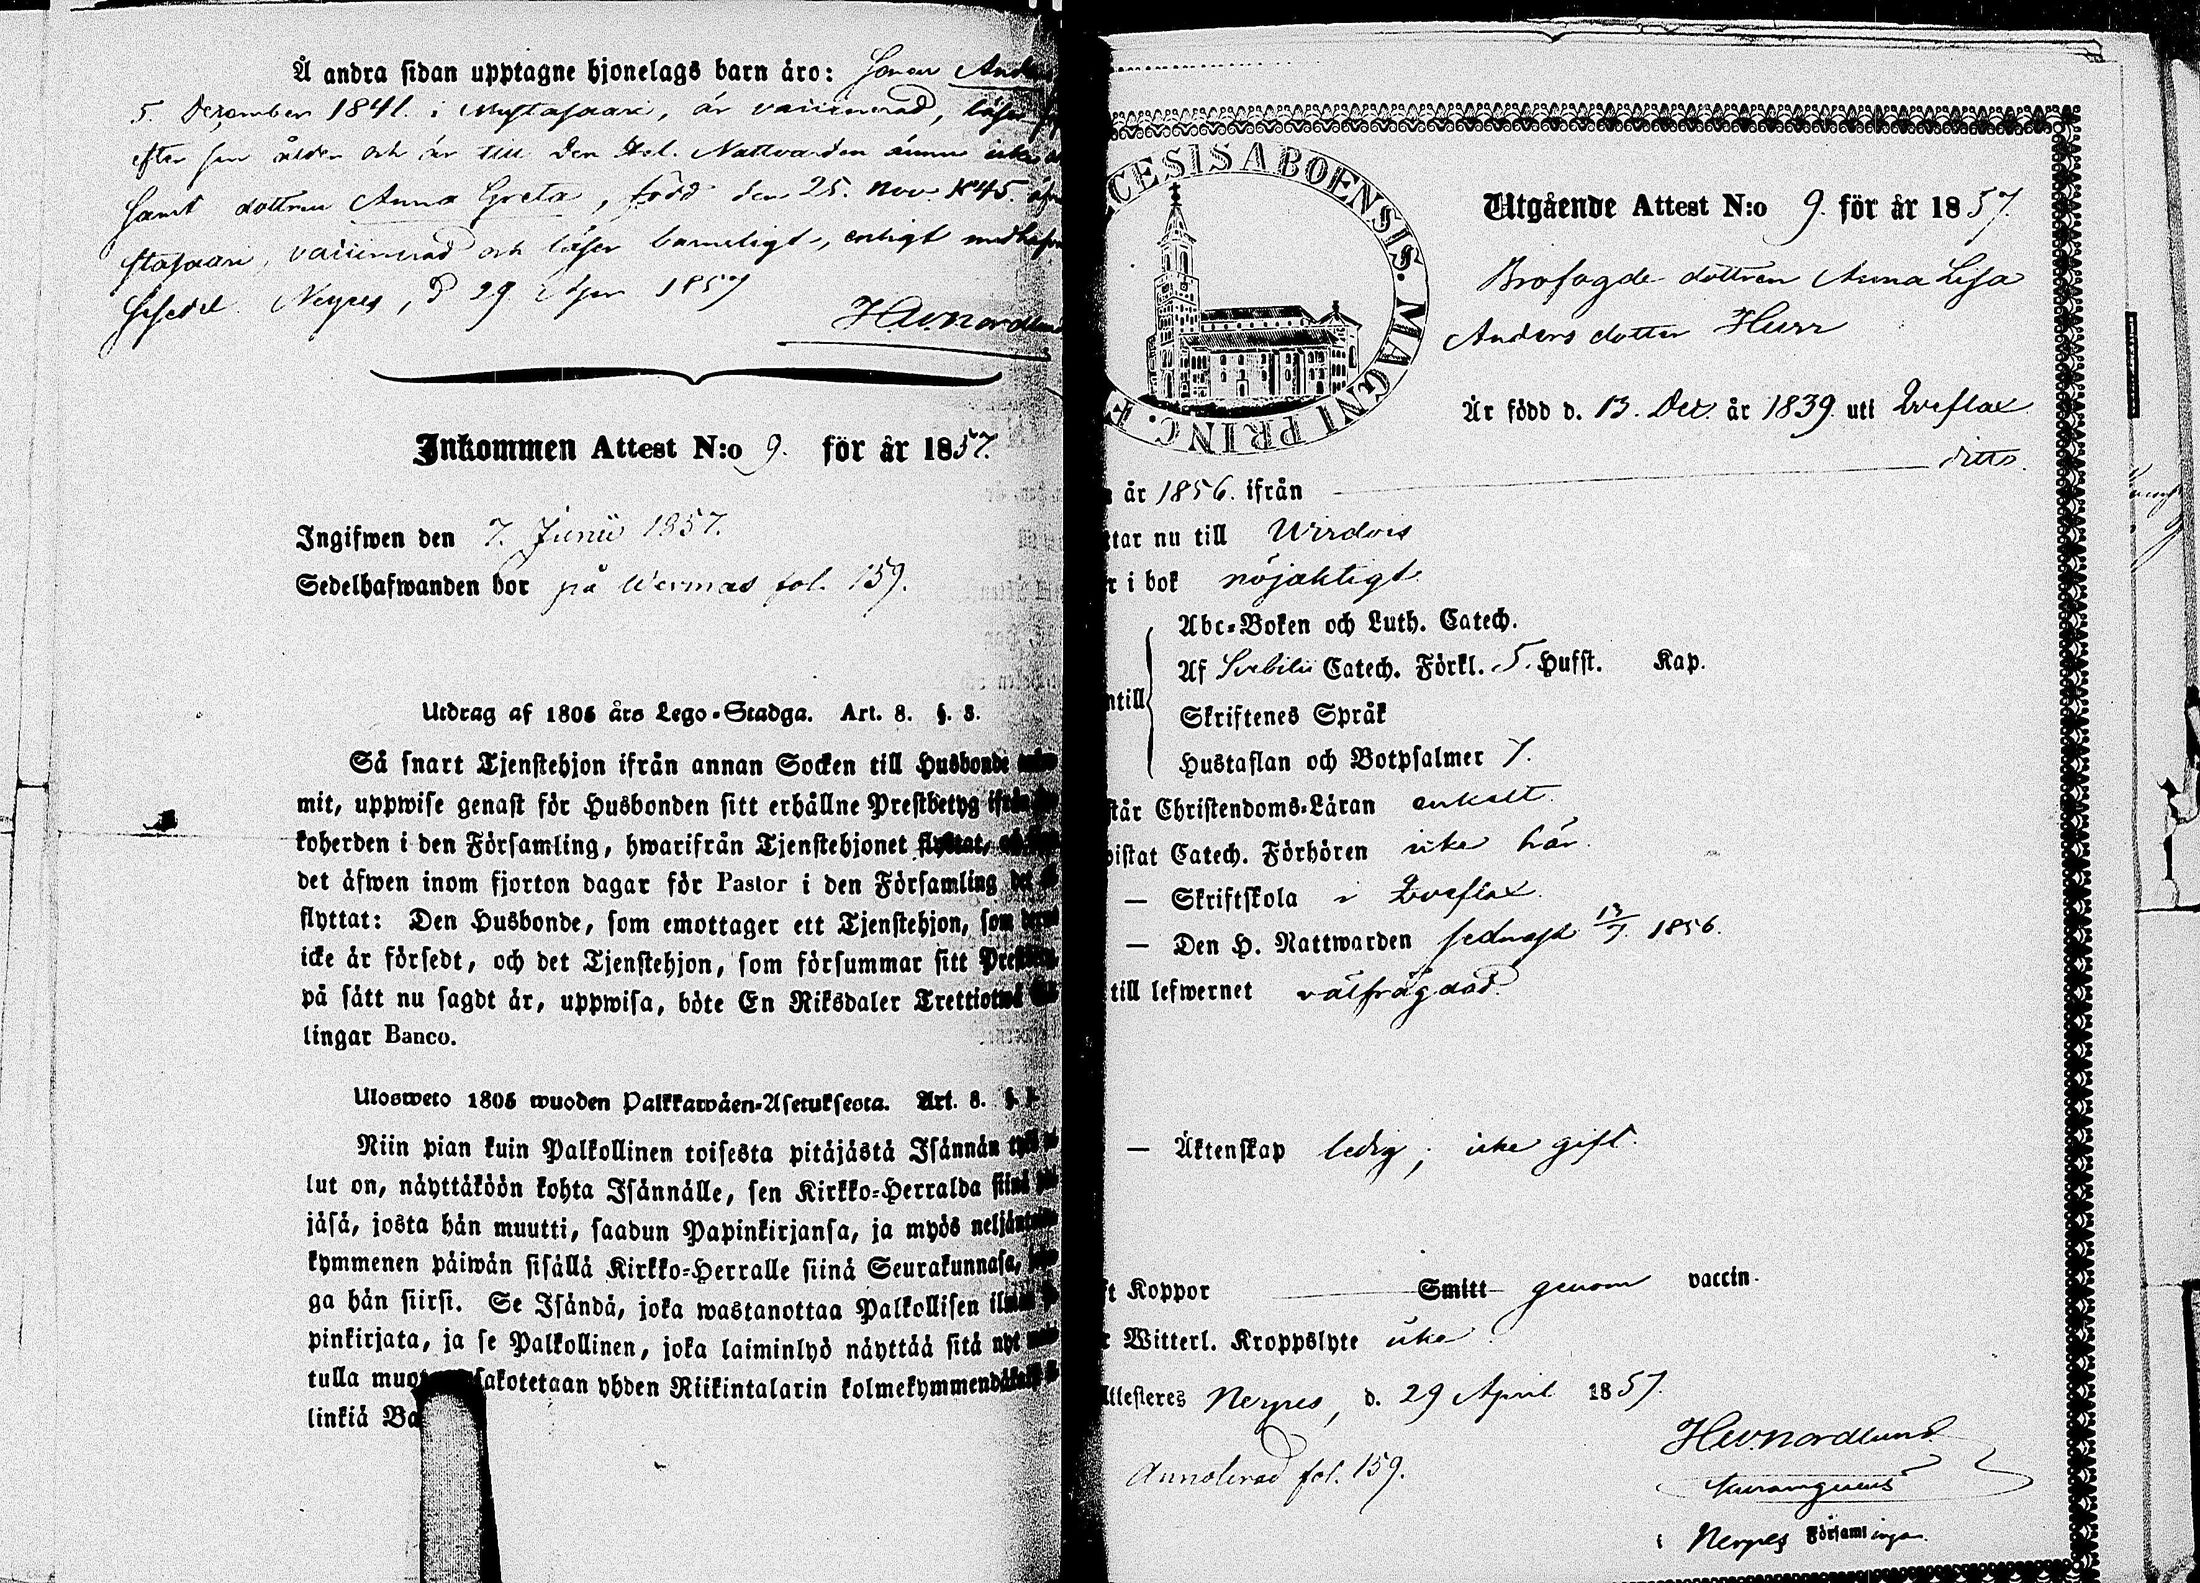 Å andra sidan upptagne hjonelags barn äro: Sonen And
5. December 1841. i Mustasaari, är vaccinerad, läser
efter sin ålder och är till Den Hel. Nattvarden ännu icke
samt dottren Anna Greta, född den 25. Nov. 1845.
stasaari, vaccinerad och läser barnsligt, enligt medhafd
Nerpes, d 29 Apr 1857
HWNordlund
Inkommen Attest N:o 9. för år 1857.
Ingifwen den 7. Junii 1857.
Sedelhafwanden bor på Wermas fol. 159.
Utdrag af 1805 års Lego-Stadga. Art. 8. §. 3.
Så snart Tjenstehjon ifrån annan Socken till Husbonde
mit, uppwise genast för Husbonden sitt erhållne Prestbetyg ifrån
koherden i den Församling, hwarifrån Tjenstehjonet flyttat,
det äfwen inom fjorton dagar för Pastor i den Församling det
flyttat: Den Husbonde, som emottager ett Tjenstehjon, som
icke är försedt, och det Tjenstehjon, som försummar sitt
på sätt nu sagdt är, uppwisa, böte En Riksdaler Trettiotwå
lingar Banco.
Ulosweto 1805 wuoden Palkkawäen-Asetuksesta. Art. 8. §.
Niin pian kuin Palkollinen toisesta pitäjästä Isännän
lut on, näyttäköön kohta Isännälle, sen Kirkko-Herralda siinä
jäsä, josta hän muutti, saadun Papinkirjansa, ja myös
kymmenen päiwän sisällä Kirkko-Herralle siinä Seurakunnasa,
ga hän siirsi. Se Isändä, joka wastanottaa Palkollisen
pinkirjata, ja se Palkollinen, joka laiminlyö näyttää sitä nyt
tulla sakotetaan yhden Riikintalarin
linkiä Ba
CESIS ABOENSIS. MAGNI PRINC. F
Utgående Attest N:o 9. för år 1857.
Brofogde dottren Anna Lisa
Anders dotter Hurr
Är född d. 13. Dec. år 1839 uti Qveflax
ditto.
år 1856. ifrån
tar nu till Wirdois
r i bok nöjaktigt
Abc-Boken och Luth. Catech.
Af Svebilii Catech. Förkl. 5. Hufst. Kap.
ntill
Skriftenes Språk
Hustaflan och Botpsalmer 7.
står Christendoms-Läran enkelt.
bistat Catech. Förhören icke här.
— Skriftskola i Qveflax.
— Den H. Nattwarden sednast 13/7. 1856.
till lefwernet välfrägdad.
— Äktenskap ledig; icke gift.
t Koppor Smitt genom vaccin.
r Witterl. Kroppslyte icke
Attesteres Nerpes, d. 29 April 1857.
HWNordlund
Annoterad fol. 159.
i Nerpes Församlingar.